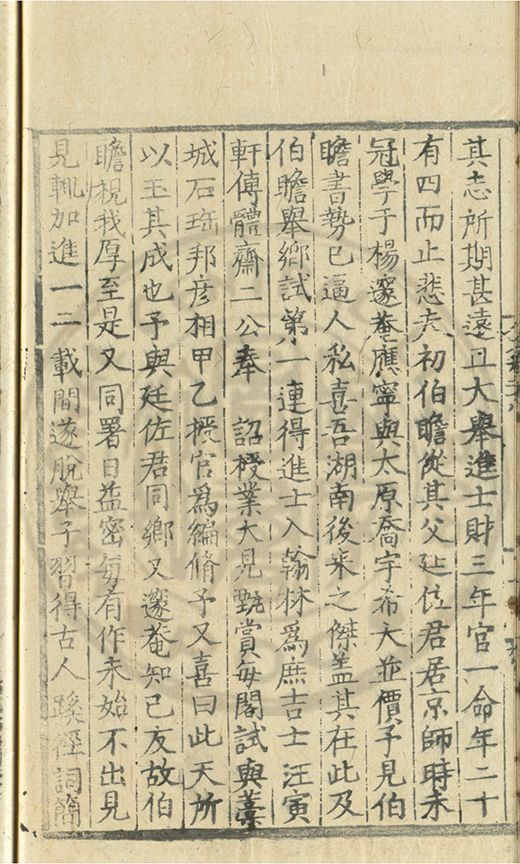 其志所期甚遠且大舉進士財三年官一命年二十
有四而止悲夫初伯瞻從其父廷佐君居京師時未
冠學于楊邃菴應寧與太原喬宇希大並價予見伯
瞻書勢已逼人私喜吾湖南後來之傑盖其在此及
伯瞻舉鄉試第一連得進士入翰林爲庶吉士汪寅
軒傅體齋二公奉 詔授業大見甄賞每閣試與藁
城石珤邦彦相甲乙授官爲編脩予又喜曰此天所
以玉其成也予與廷佐君同鄉又邃菴知己友故伯
瞻視我厚至是又同署日益密每有作未始不出見
見輒加進一二載間遂脫舉子習得古人蹊徑詞簡